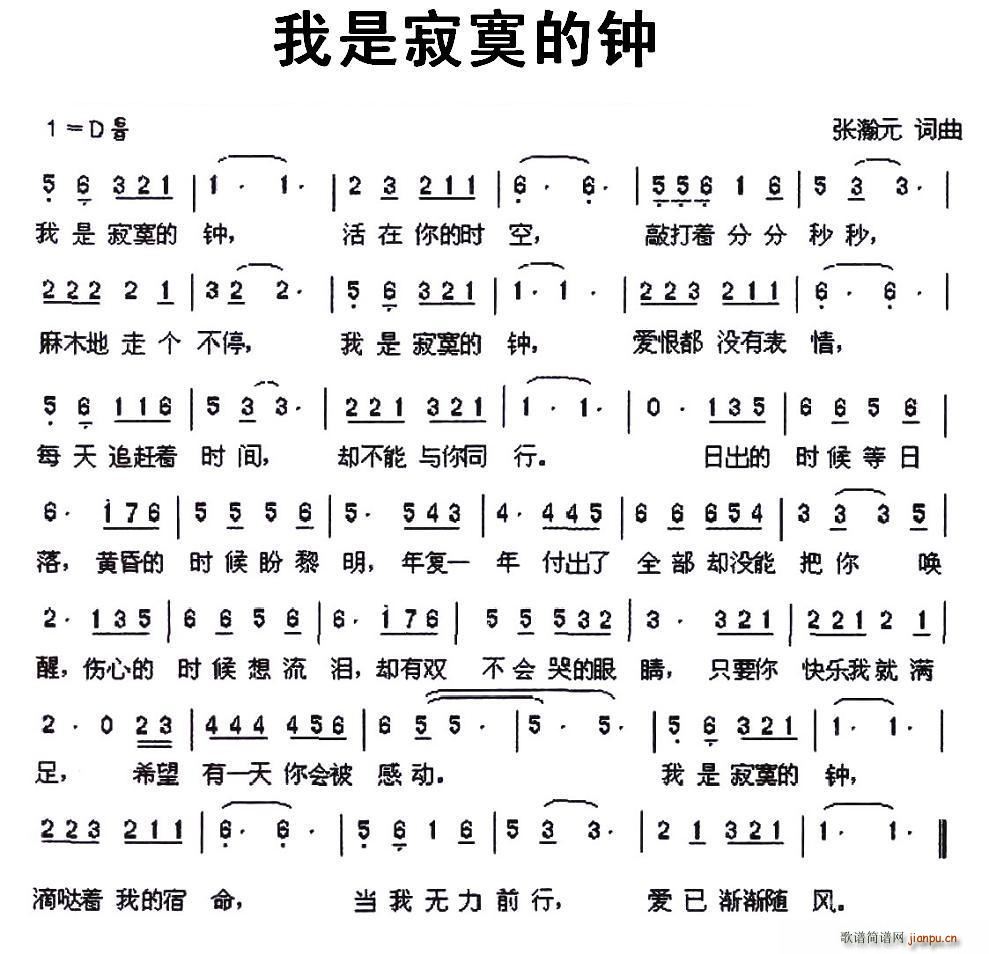 我是寂寞的钟
1=D
张瀚元 词曲
5 6 321 | 1 · 1 · | 2 3 211 | 6 · 6 · | 556 1 6 | 5 3 3 · |
我是寂寞的 钟, 活在你的时 空, 敲打着分分 秒秒,
222 2 1 | 3 2 2 · | 5 6 321 | 1 · 1 · | 223 211 | 6 · 6 · |
麻木地走个 不停, 我是寂寞的 钟, 爱恨都没有表 情,
5 6 116 | 5 3 3 · | 221 321 | 1 · 1 · | 0 · 135 | 6 6 5 6 |
每天追赶着 时间, 却不能与你同 行。 日出的 时候等日
6 · 176 | 5 5 5 6 | 5 · 543 | 4 · 445 | 6 6 654 | 3 3 3 5 |
落, 黄昏的 时候盼黎 明, 年复一 年 付出了 全部却没能 把你 唤
2 · 135 | 6 6 5 6 | 6 · 176 | 5 5 532 | 3 · 321 | 221 2 1 |
醒, 伤心的 时候想流 泪, 却有双 不会哭的眼 睛, 只要你 快乐我就满
2 · 0 23 | 444 456 | 6 5 5 · | 5 · 5 · | 5 6 321 | 1 · 1 · |
足, 希望 有一天你会被 感动。 我是寂寞的 钟,
223 211 | 6 · 6 · | 5 6 1 6 | 5 3 3 · | 2 1 321 | 1 · 1 · ‖
滴哒着我的宿 命, 当我无力 前行, 爱已渐渐随 风。
歌谱简谱网 jianpu.cn